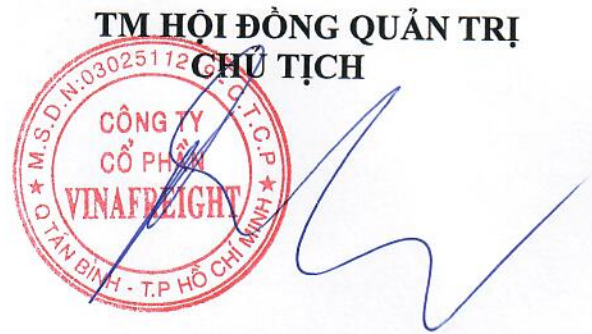 TM HỘI ĐỒNG QUẢN TRỊ
CHỦ TỊCH
M.S.D.N:03025112 C.T.C.P
CÔNG TY
CỔ PHẦN
VINAFREIGHT
Q TÂN BÌNH - T.P HỒ CHÍ MINH